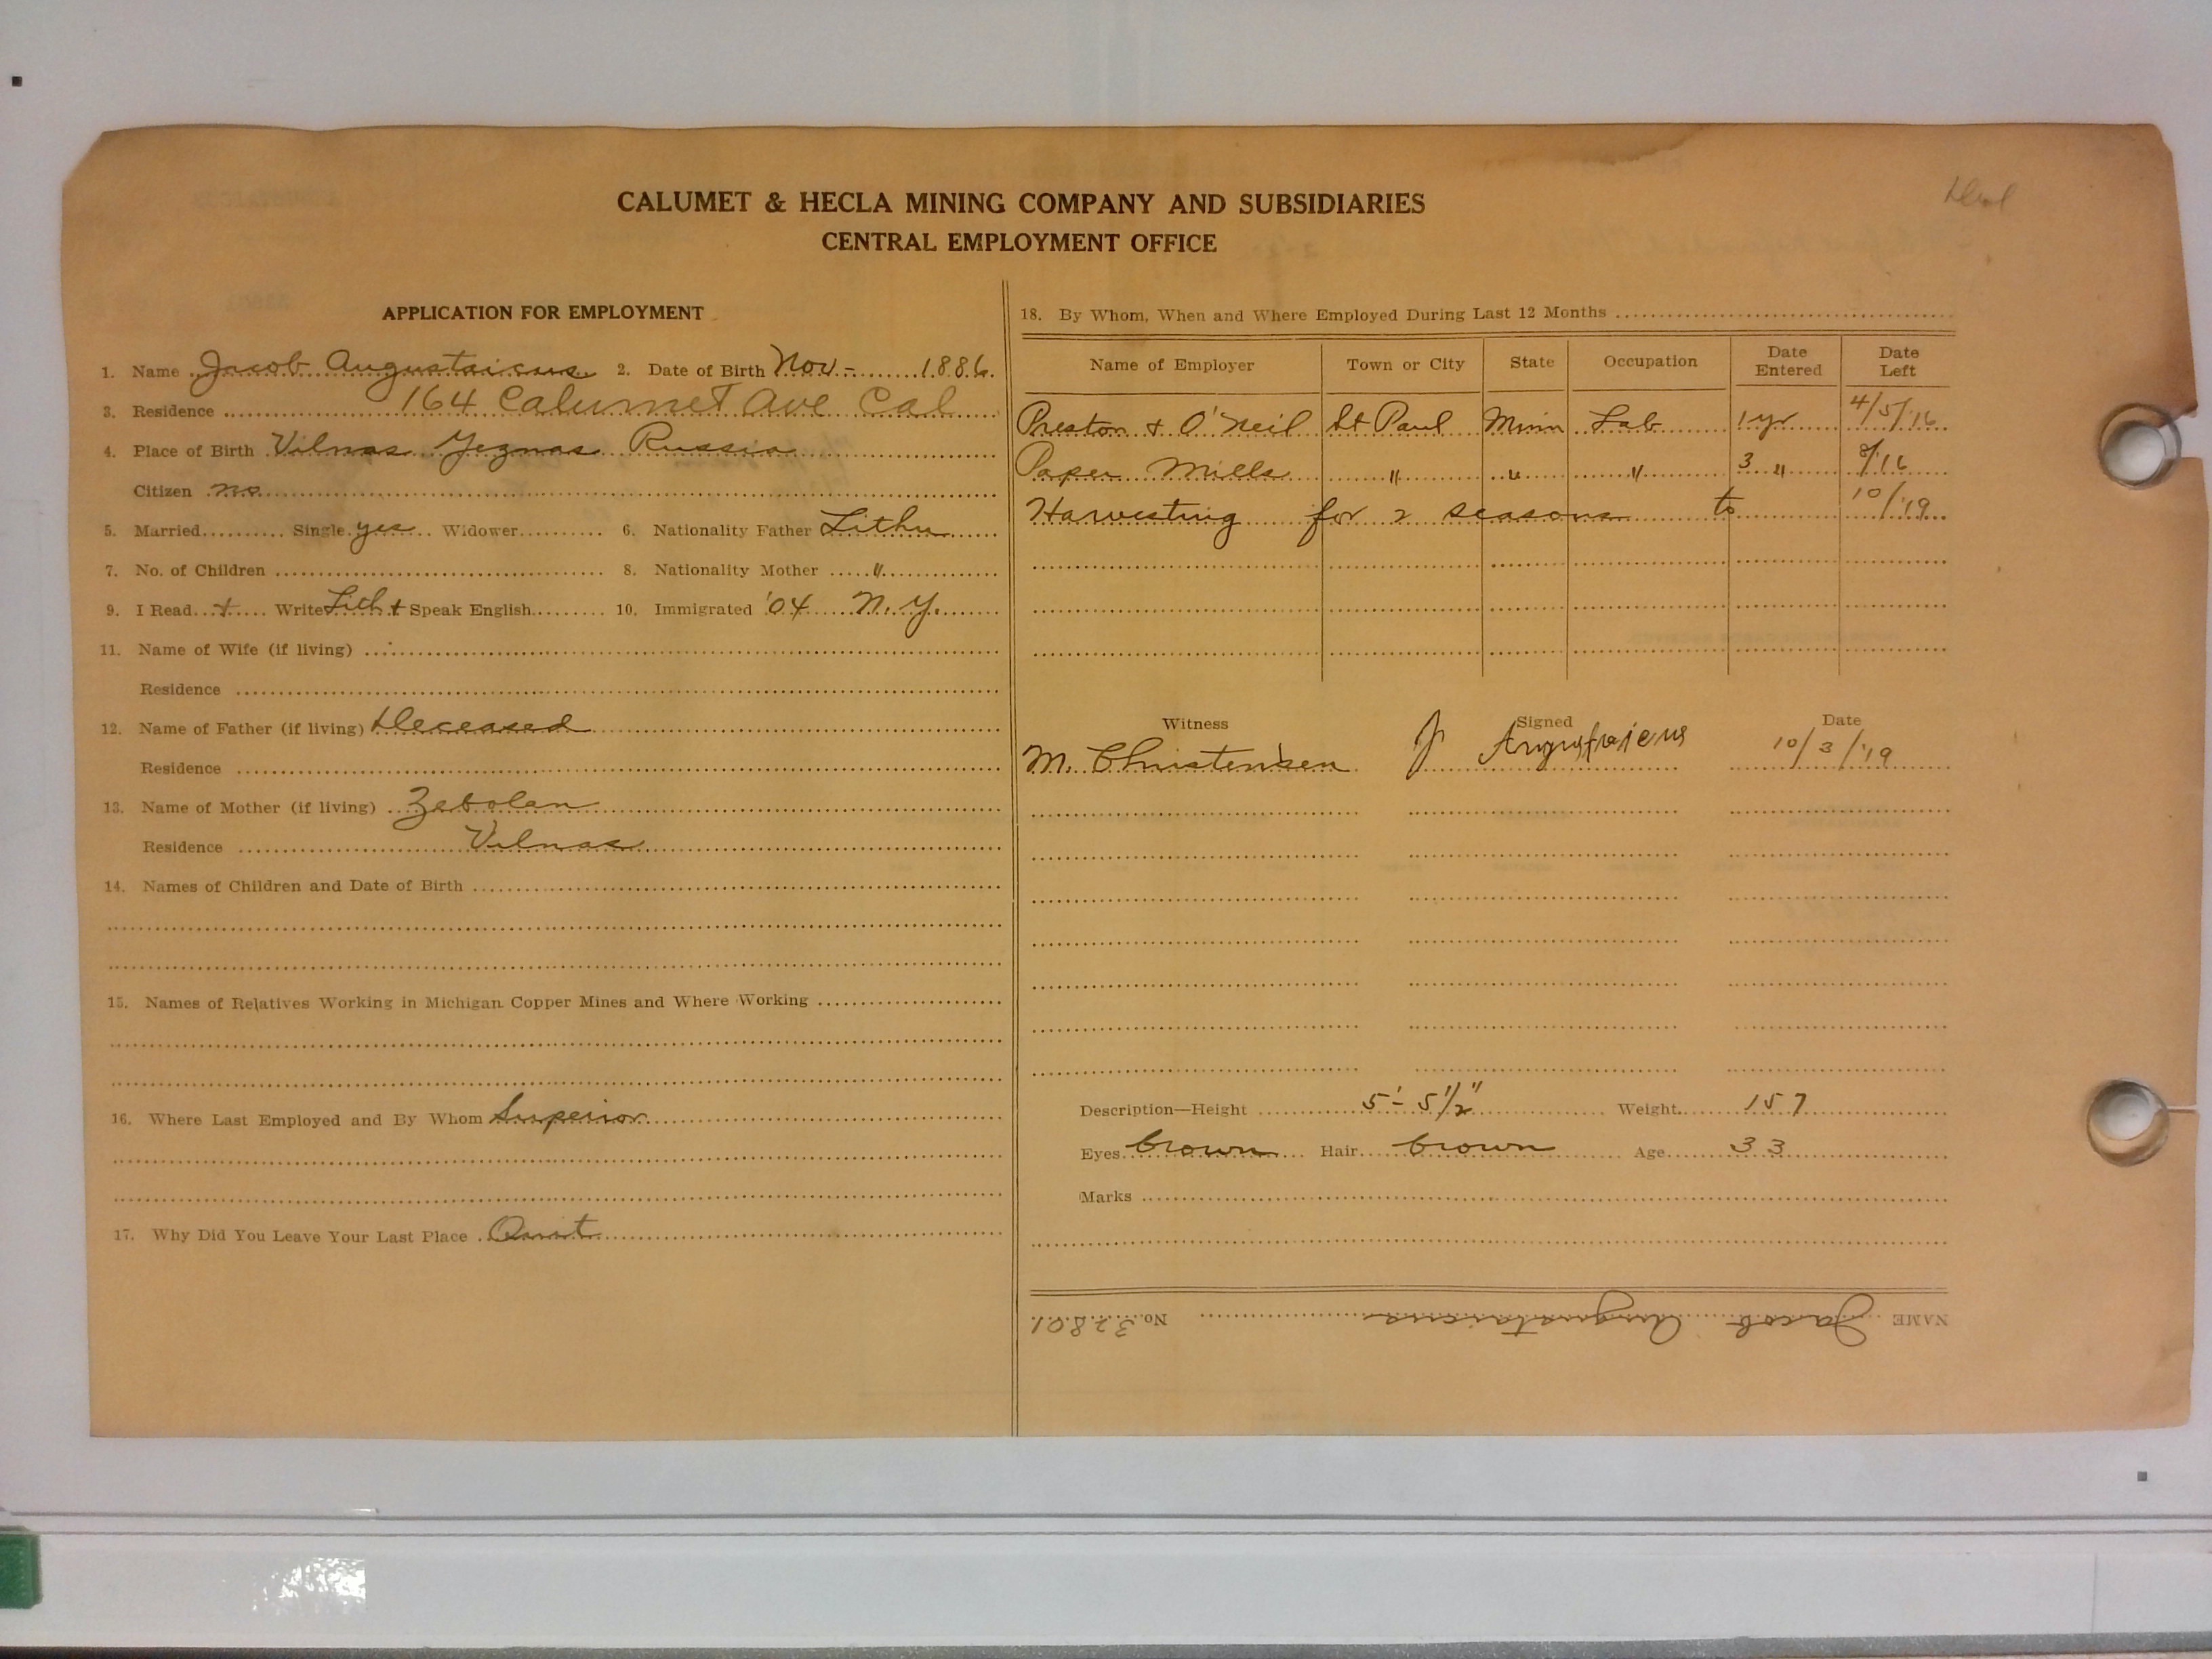 CALUMET & HECLA MINING COMPANY AND SUBSIDIARIES
CENTRAL EMPLOYMENT OFFICE
APPLICATION FOR EMPLOYMENT
1. Name Jacob Augustaicus 2. Date of Birth Nov - 1886
3. Residence 164 Calumet Ave Cal
4. Place of Birth Vilnas Jeznas Russia
Citizen no
5. Married Single yes Widower 6. Nationality Father Lithu
7. No. of Children 8. Nationality Mother "
9. I Read + Write Lith + Speak English 10. Immigrated '04 N.Y.
11. Name of Wife (if living)
Residence
12. Name of Father (if living) Deceased
Residence
13. Name of Mother (if living) Zebolan
Residence Vilnas
14. Names of Children and Date of Birth
15. Names of Relatives Working in Michigan Copper Mines and Where Working
16. Where Last Employed and By Whom Superior
17. Why Did You Leave Your Last Place Quit
18. By Whom, When and Where Employed During Last 12 Months
Name of Employer Town or City State Occupation Date Entered Date Left
Preston & O'Neil St Paul Minn Lab 1 yr 4/5/16
Paper Mills " " " 3 " 8/16
Harvesting for 2 seasons to 10/19
Witness Signed Date
M. Christensen J Augustaicus 10/3/19
Description—Height 5'- 5 1/2" Weight 157
Eyes brown Hair brown Age 33
Marks
NAME Jacob Augustaicus No. 32801